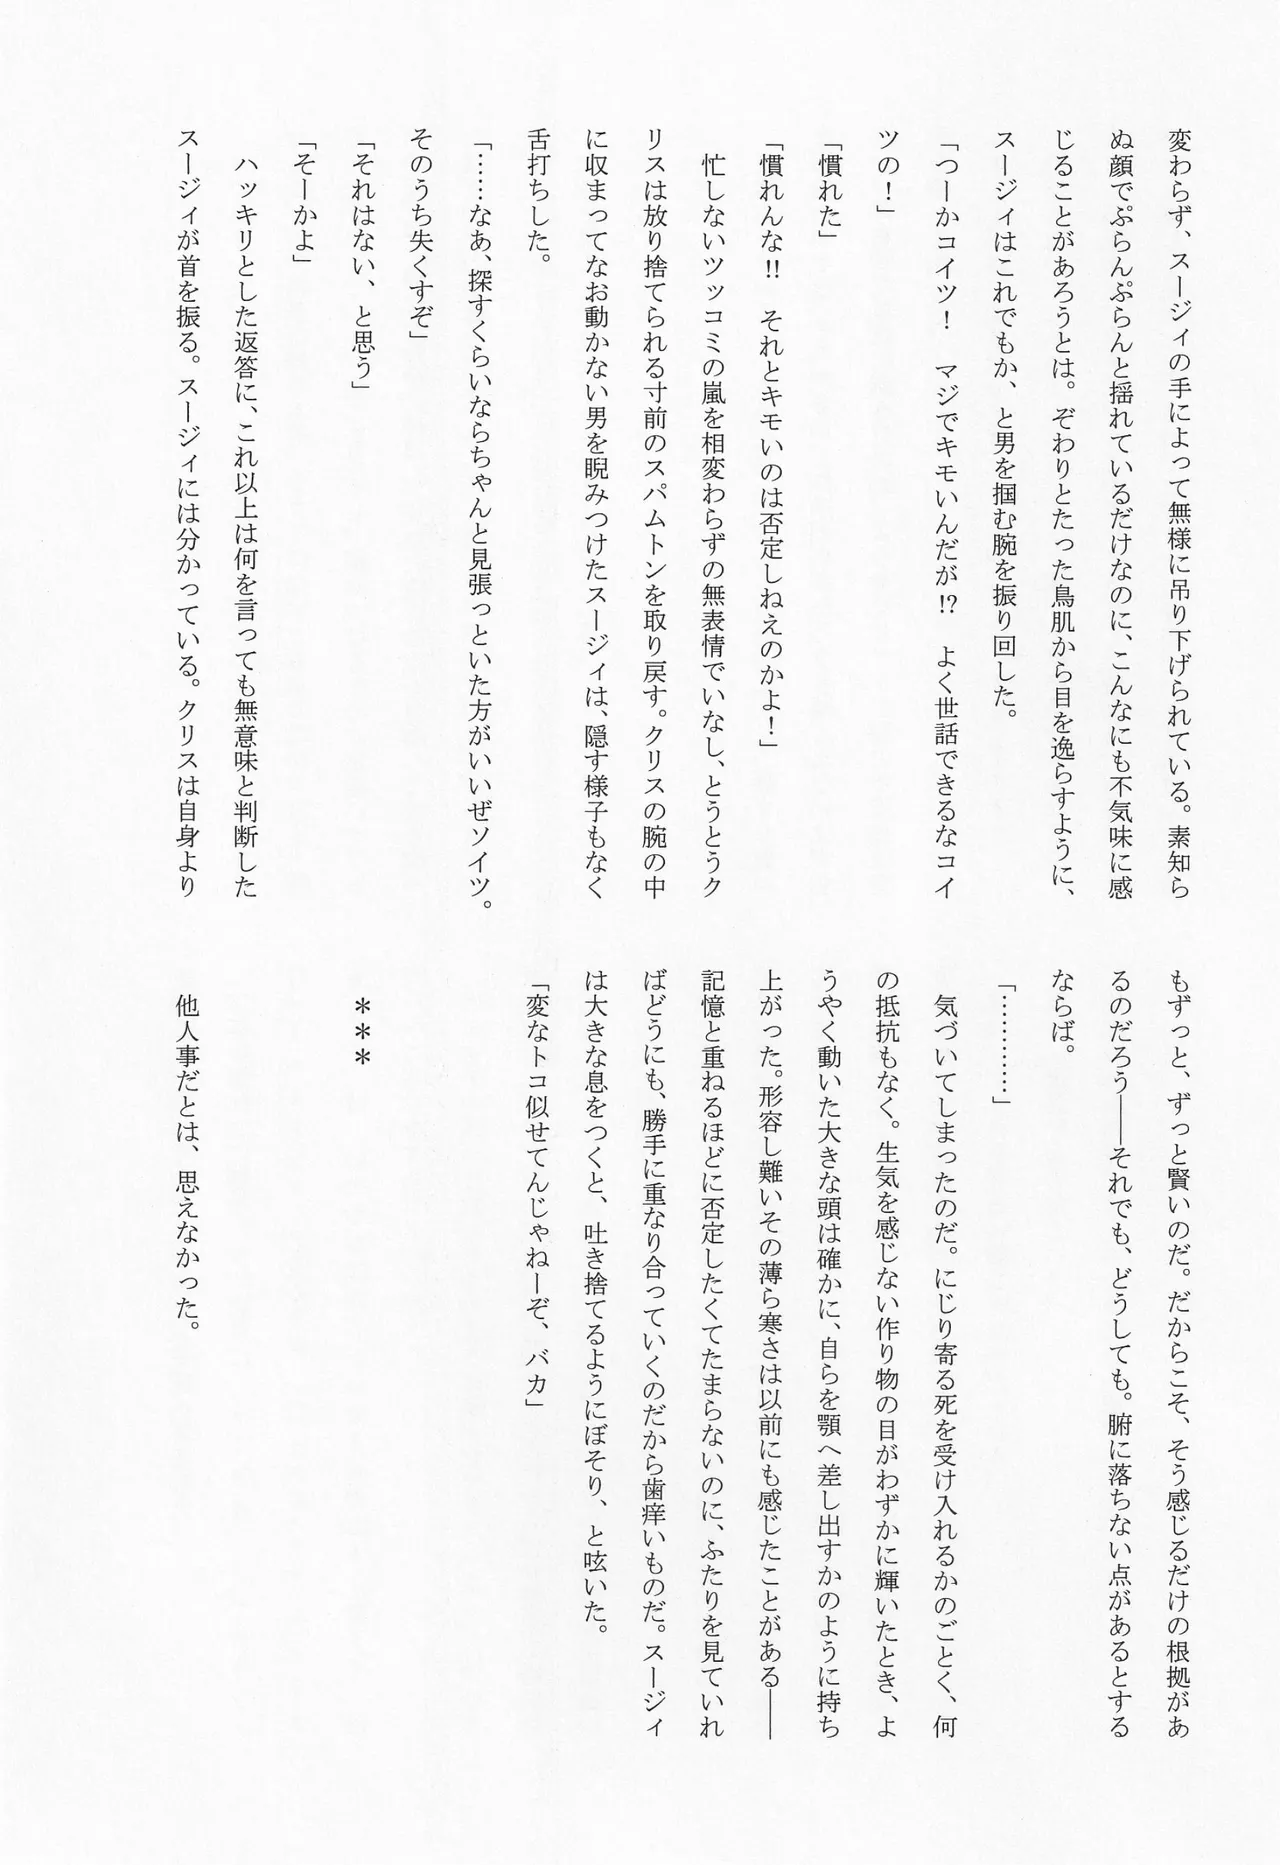 変わらず、スージィの手によって無様に吊り下げられている。素知ら
ぬ顔でぷらんぷらんと揺れているだけなのに、こんなにも不気味に感
じることがあろうとは。ぞわりとたった鳥肌から目を逸らすように、
スージィはこれでもか、と男を掴む腕を振り回した。
「つーかコイツ！　マジでキモいんだが!?　よく世話できるなコイ
ツの！」
「慣れた」
「慣れんな!!　それとキモいのは否定しねえのかよ！」
　忙しないツッコミの嵐を相変わらずの無表情でいなし、とうとうク
リスは放り捨てられる寸前のスパムトンを取り戻す。クリスの腕の中
に収まってなお動かない男を睨みつけたスージィは、隠す様子もなく
舌打ちした。
「……なあ、探すくらいならちゃんと見張っといた方がいいぜソイツ。
そのうち失くすぞ」
「それはない、と思う」
「そーかよ」
　ハッキリとした返答に、これ以上は何を言っても無意味と判断した
スージィが首を振る。スージィには分かっている。クリスは自身より
もずっと、ずっと賢いのだ。だからこそ、そう感じるだけの根拠があ
るのだろう――それでも、どうしても。腑に落ちない点があるとする
ならば。
「…………」
　気づいてしまったのだ。にじり寄る死を受け入れるかのごとく、何
の抵抗もなく。生気を感じない作り物の目がわずかに輝いたとき、よ
うやく動いた大きな頭は確かに、自らを顎へ差し出すかのように持ち
上がった。形容し難いその薄ら寒さは以前にも感じたことがある――
記憶と重ねるほどに否定したくてたまらないのに、ふたりを見ていれ
ばどうにも、勝手に重なり合っていくのだから歯痒いものだ。スージィ
は大きな息をつくと、吐き捨てるようにぼそり、と呟いた。
「変なトコ似せてんじゃねーぞ、バカ」
＊＊＊
他人事だとは、思えなかった。